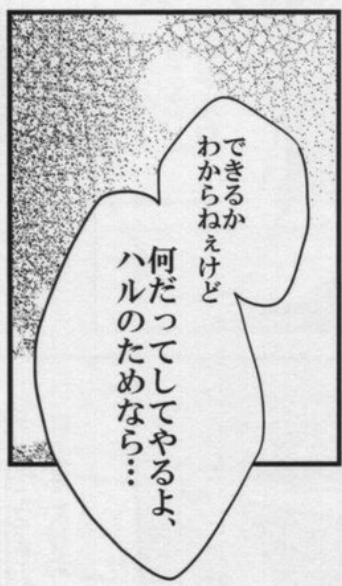 できるか
わからねぇけど
何だってしてやるよ、
ハルのためなら…